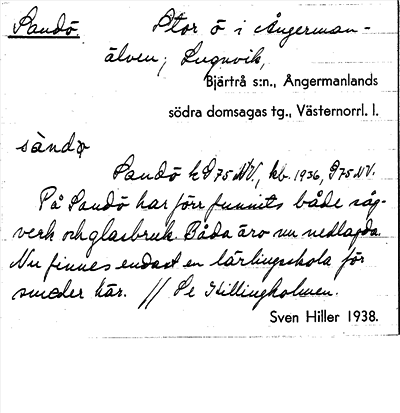 Sandö Stor ö i Ångerman-
älven, Lugnvik,
Bjärtrå s:n., Ångermanlands
södra domsagas tg., Västernorrl. l.
sàndø
Sandö kD 75 NV, kb. 1936, D 75 NV.
På Sandö har förr funnits både såg-
verk och glasbruk. Båda äro nu nedlagda.
Nu finnes endast en lärlingskola för
smeder här. // Se Killingholmen.
Sven Hiller 1938.